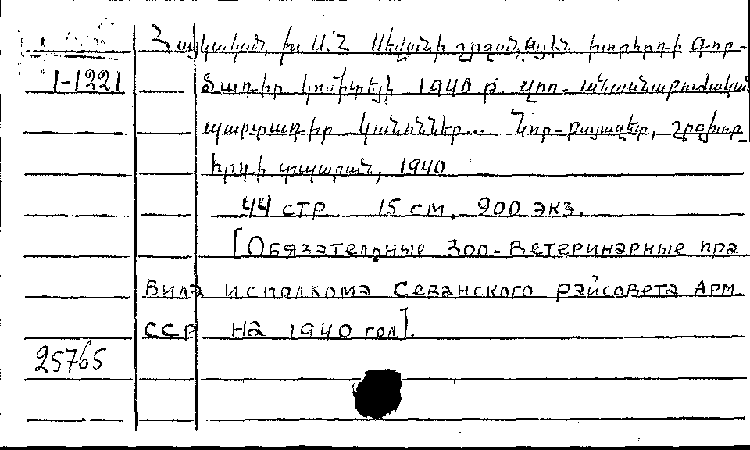 Հայկական խ Ս. Հ Սևանի շրջանային խորհրդի Գոր-
1-1221 ծադիր կոմիտեյի 1940 թ. զոո-անասնաբուժական
պարտադիր կանոններ... Նոր-Բայազետ, շրջխոր
հրդի տպարան, 1940
44 стр 15 см. 900 экз.
[Обязательные зоо-ветеринарные пра
вила исполкома Севанского райсовета Арм.
ССР на 1940 год].
25765